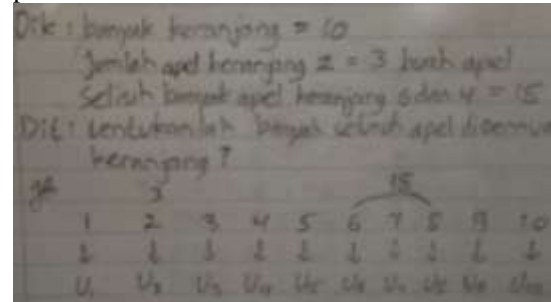 Dik : banyak keranjang = 10
Jumlah apel keranjang 2 = 3 buah apel
Selisih banyak apel keranjang 6 dan 4 = 15
Dit : tentukanlah banyak seluruh apel disemua
keranjang ?
3 15
1 2 3 4 5 6 7 8 9 10
↓ ↓ ↓ ↓ ↓ ↓ ↓ ↓ ↓ ↓
U₁ U₂ U₃ U₄ U₅ U₆ U₇ U₈ U₉ U₁₀